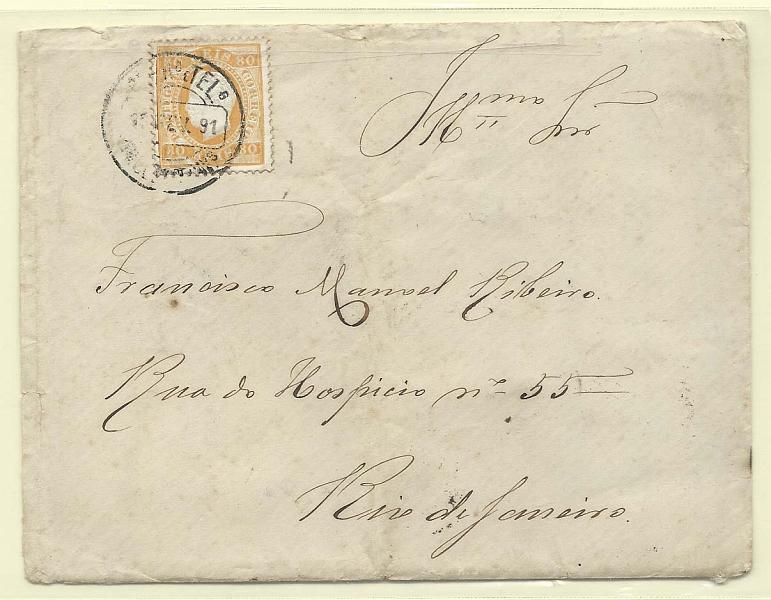 80 REIS 80
TEL
91
80 80
Francisco Manoel Ribeiro.
Rua do Hospicio nº 55
Rio de Janeiro.